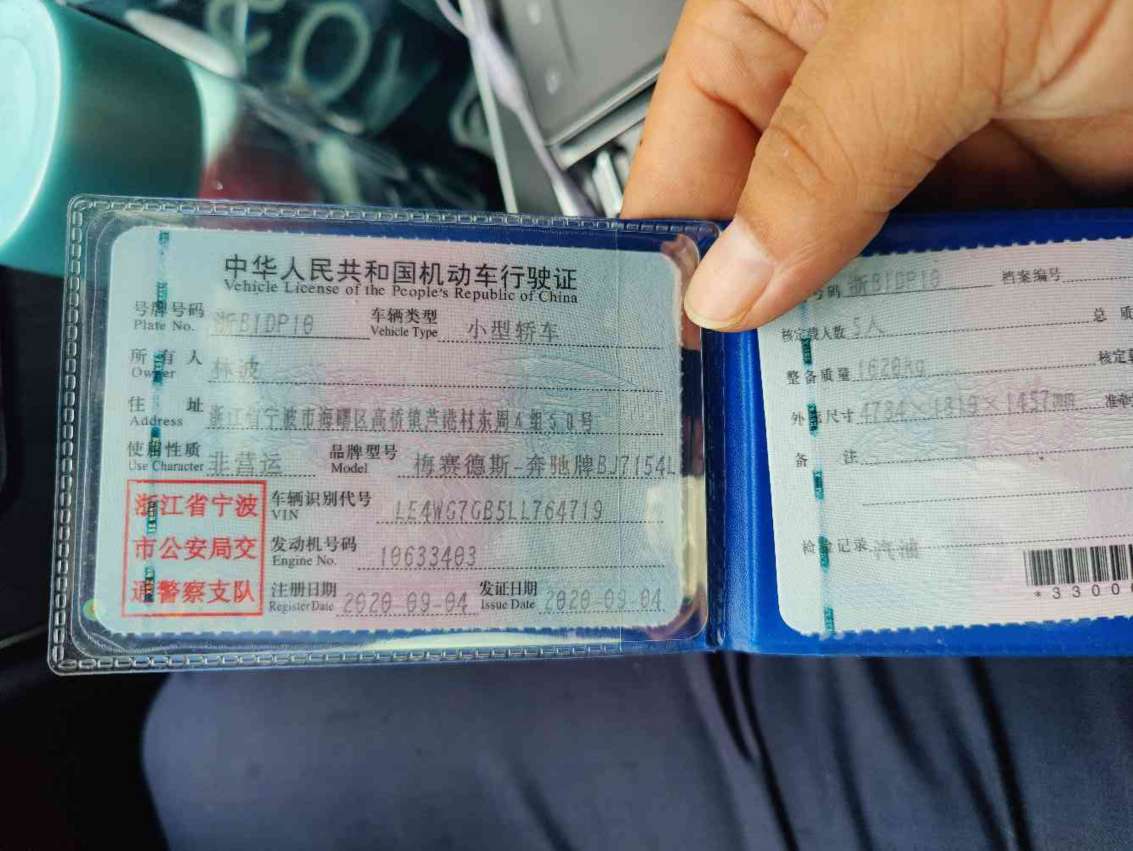 中华人民共和国机动车行驶证
Vehicle License of the People's Republic of China
号牌号码 浙B1DP10 车辆类型 小型轿车
Plate No. Vehicle Type
所有人 林波
Owner
住址 浙江省宁波市海曙区高桥镇芦港村东周4组50号
Address
使用性质 非营运 品牌型号 梅赛德斯-奔驰牌BJ7154L
Use Character Model
浙江省宁波
市公安局交
通警察支队
车辆识别代号 LE4WG7GB5LL764719
VIN
发动机号码 10633403
Engine No.
注册日期 2020-09-04 发证日期 2020-09-04
Register Date Issue Date
号码 浙B1DP10 档案编号
核定载人数 5人 总质
整备质量 1620kg 核定
外廓尺寸 4784×1819×1457mm 准牵
备注
检验记录 汽油
*3300